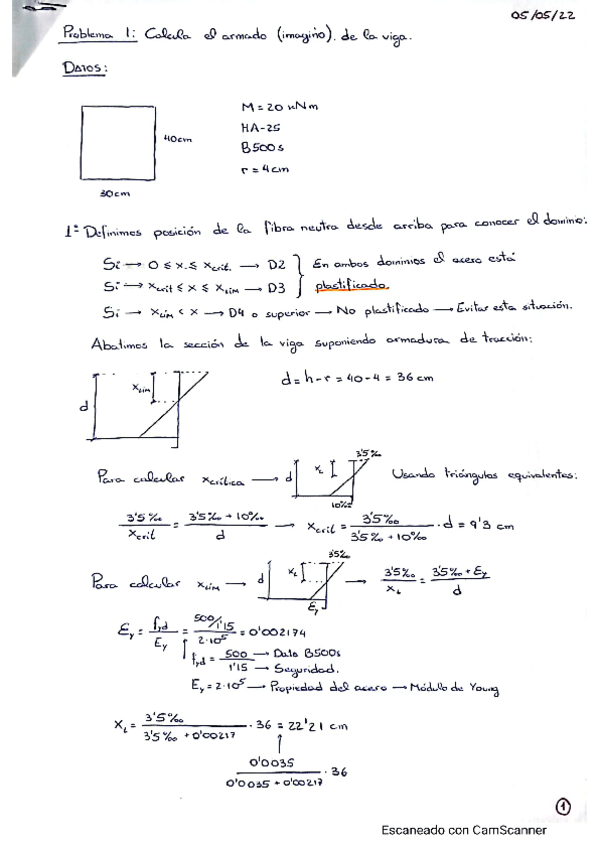 05/05/22
Problema 1: Calcula el armado (imagino). de la viga.
DATOS:
M = 20 kNm
HA-25
40cm
B500s
r = 4cm
30cm
1º Definimos posición de la fibra neutra desde arriba para conocer el dominio:
Si → 0 ≤ x ≤ xcrit. → D2
En ambos dominios el acero está
Si → xcrit ≤ x ≤ xLim → D3
plastificado.
Si → xLim < x → D4 o superior → No plastificado → Evitar esta situación.
Abatimos la sección de la viga suponiendo armadura de tracción:
d = h - r = 40 - 4 = 36 cm
xLim
d
3'5‰
Para calcular xcrítica → d xL Usando triángulos equivalentes:
10‰
3'5‰ / xcrit = 3'5‰ + 10‰ / d → xcrit = 3'5‰ / 3'5‰ + 10‰ · d = 9'3 cm
35‰
Para calcular xLim → d xL → 3'5‰ / xL = 3'5‰ + Ey / d
Ey
Ey = fyd / Ey = 500/1'15 / 2·10⁵ = 0'002174
fyd = 500 → Dato B500s
1'15 → Seguridad.
Ey = 2·10⁵ → Propiedad del acero → Módulo de Young
XL = 3'5‰ / 3'5‰ + 0'00217 · 36 = 22'21 cm
0'0035 / 0'0035 + 0'00217 · 36
1
Escaneado con CamScanner